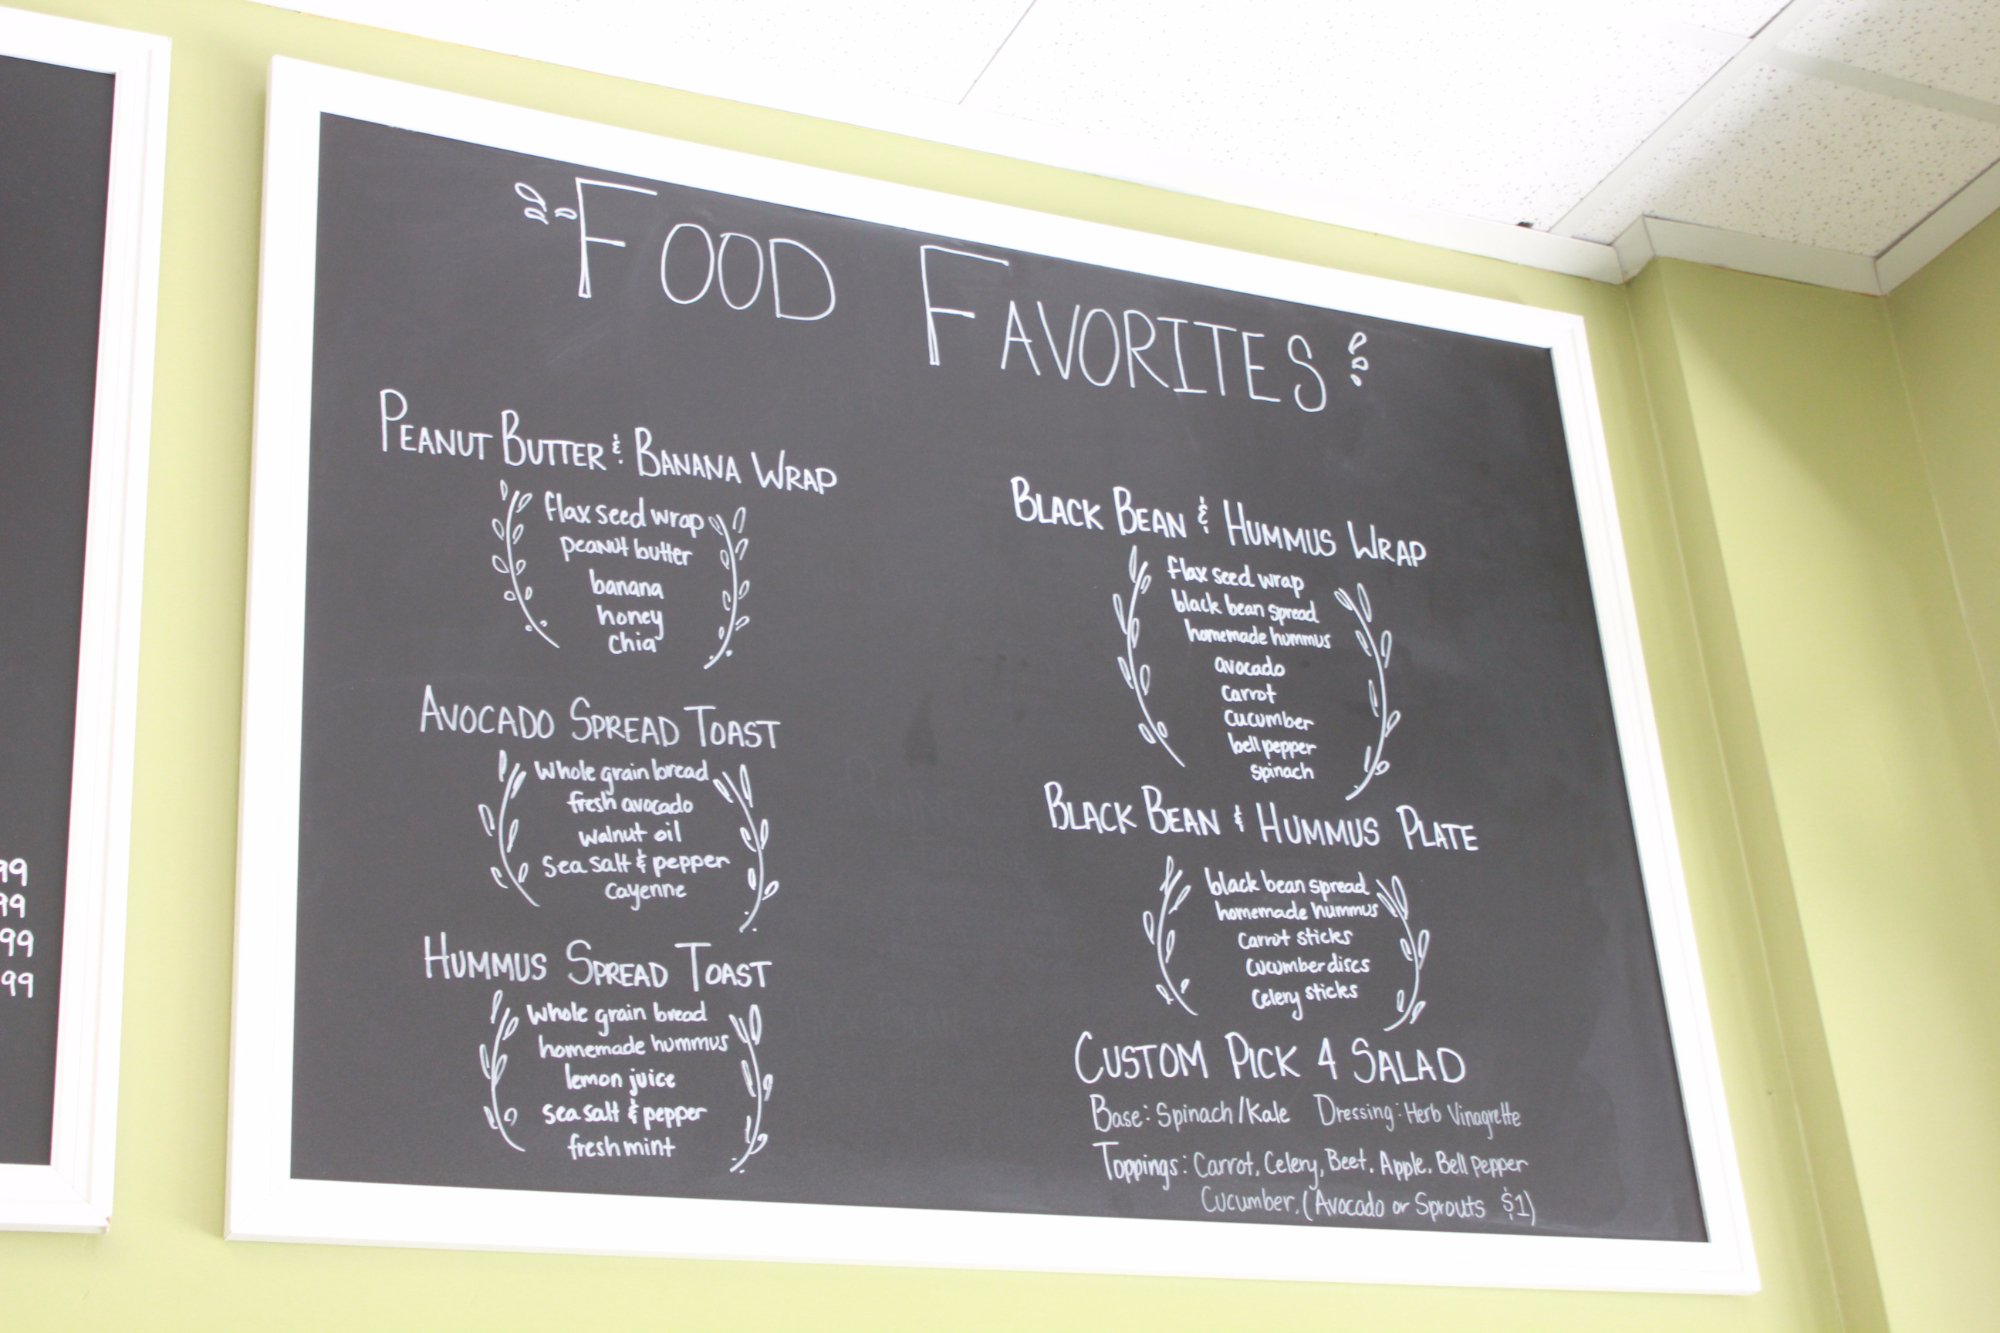 99
99
99
99
FOOD FAVORITES
PEANUT BUTTER & BANANA WRAP
flax seed wrap
peanut butter
banana
honey
chia
AVOCADO SPREAD TOAST
whole grain bread
fresh avocado
walnut oil
sea salt & pepper
cayenne
HUMMUS SPREAD TOAST
whole grain bread
homemade hummus
lemon juice
sea salt & pepper
fresh mint
BLACK BEAN & HUMMUS WRAP
flax seed wrap
black bean spread
homemade hummus
avocado
carrot
cucumber
bell pepper
spinach
BLACK BEAN & HUMMUS PLATE
black bean spread
homemade hummus
carrot sticks
cucumber discs
celery sticks
CUSTOM PICK 4 SALAD
Base: Spinach/Kale Dressing: Herb Vinagrette
Toppings: Carrot, Celery, Beet, Apple, Bell Pepper
Cucumber, (Avocado or Sprouts $1)